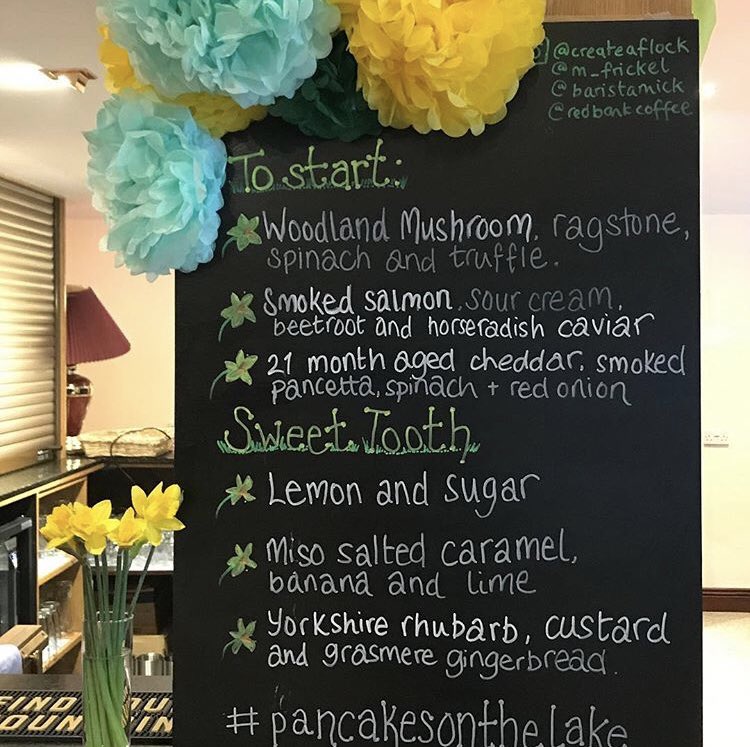 @createaflock
@m_frickel
@baristamick
@redbankcoffee
To start:
Woodland Mushroom, ragstone,
spinach and truffle.
Smoked salmon, sour cream,
beetroot and horseradish caviar
21 month aged cheddar, smoked
pancetta, spinach + red onion
Sweet Tooth
Lemon and sugar
Miso salted caramel,
banana and lime
Yorkshire rhubarb, custard
and grasmere gingerbread.
#pancakesonthelake
FIND